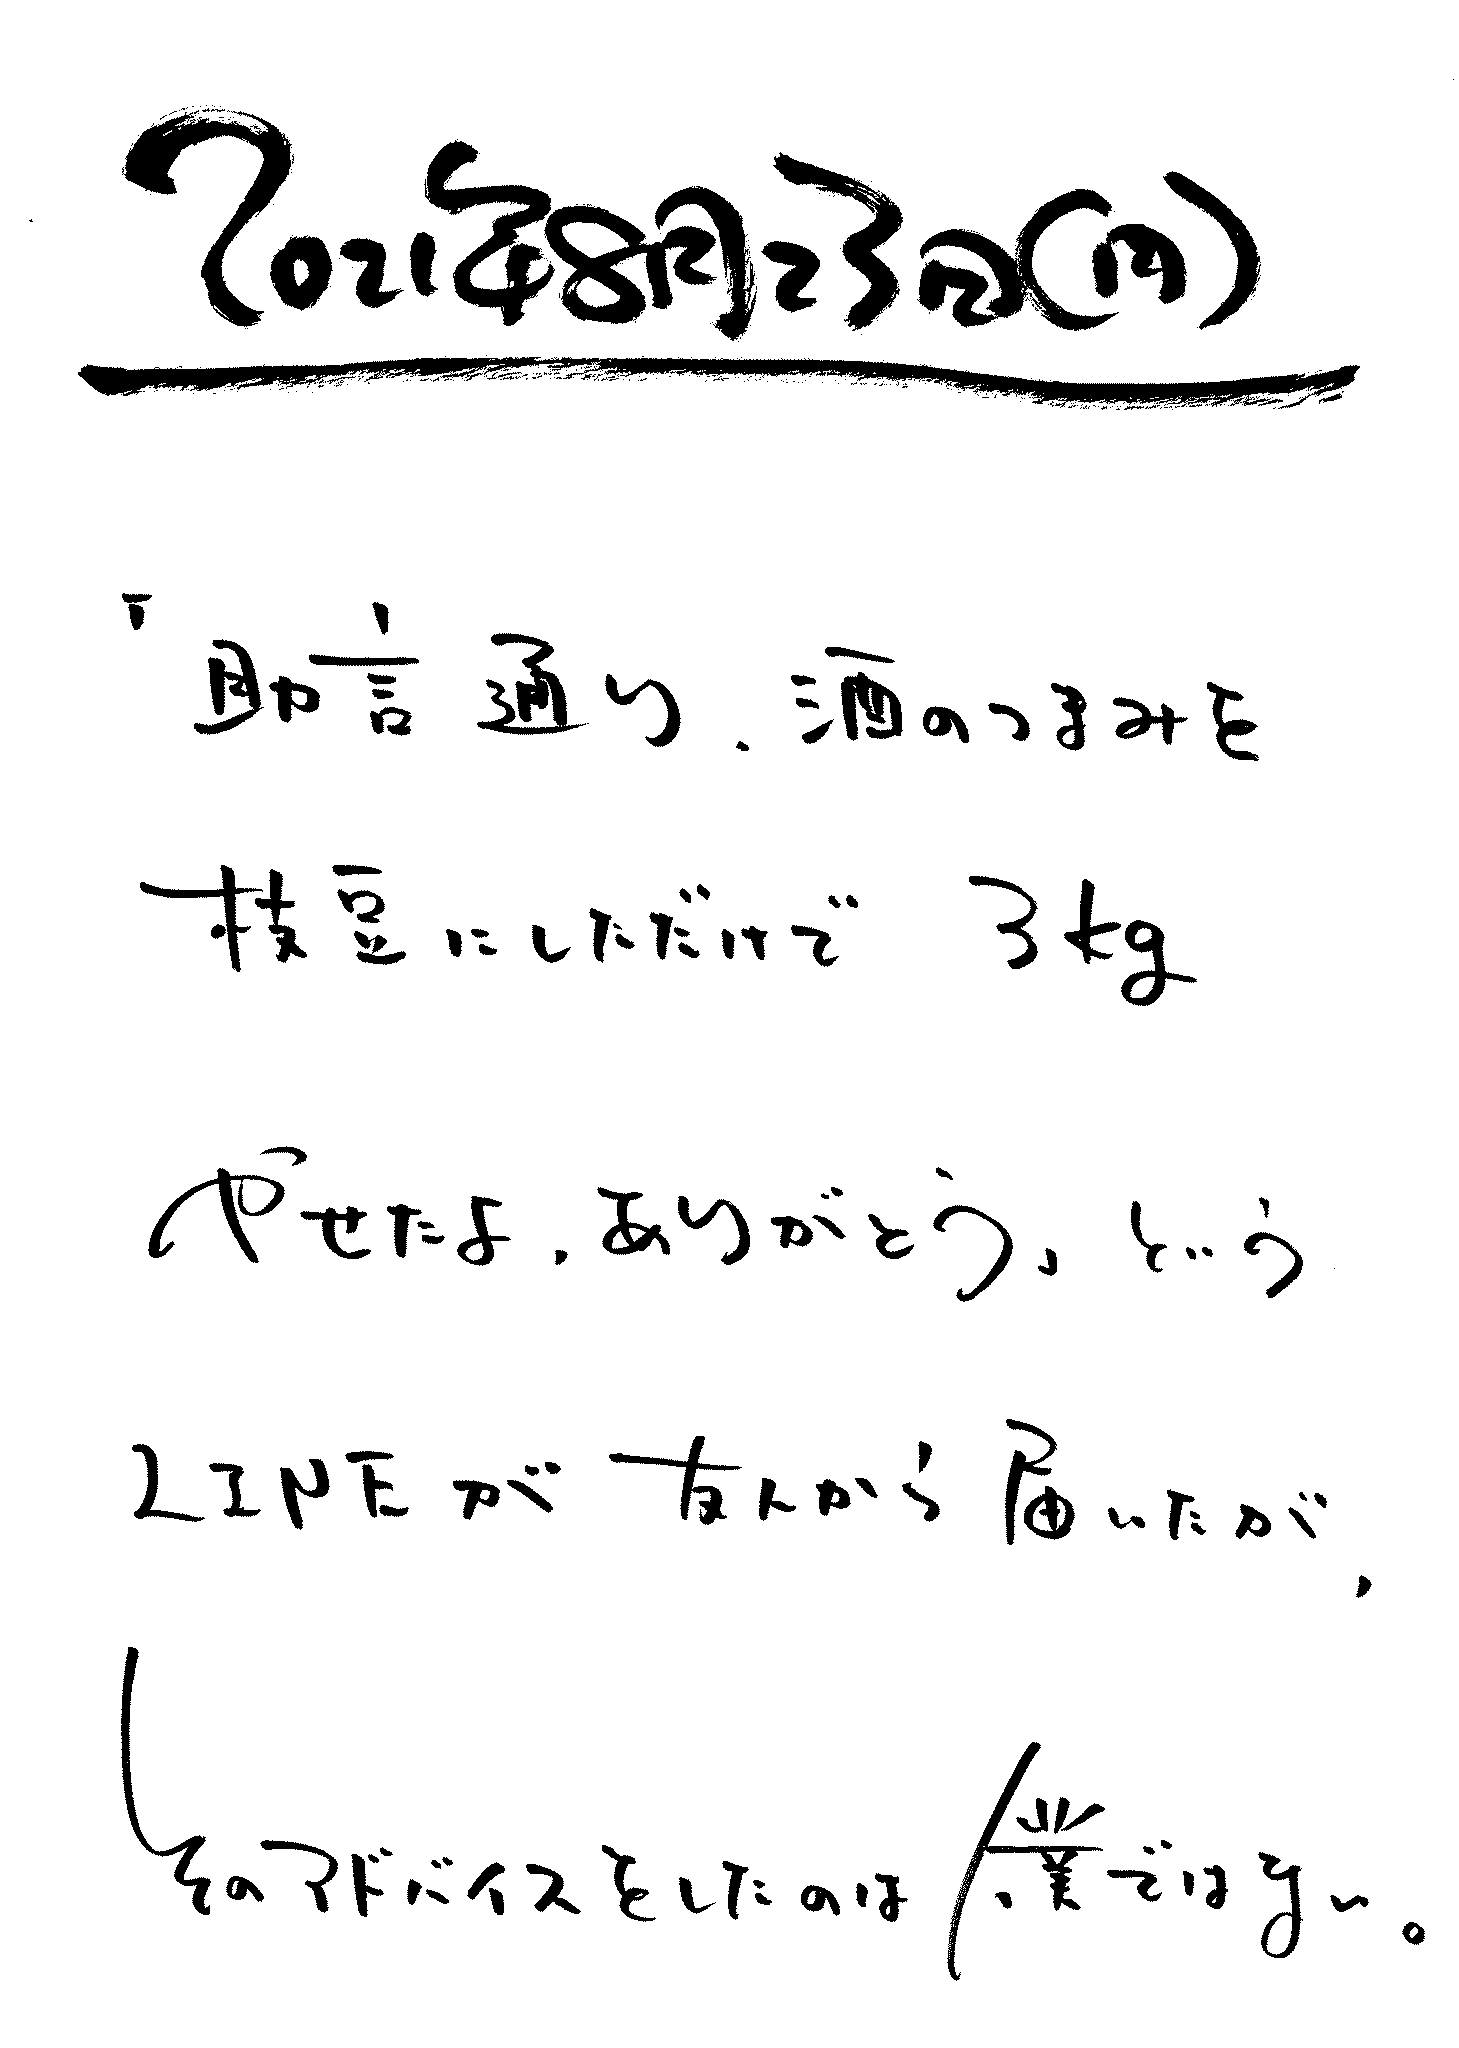 2021年8月23日(月)
「助言通り、酒のつまみを
枝豆にしただけで 3kg
やせたよ、ありがとう」という
LINEが 友人から届いたが、
そのアドバイスをしたのは僕ではない。